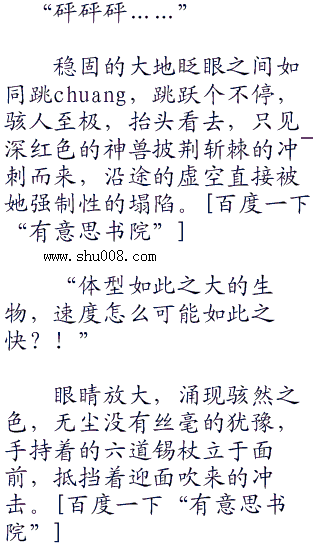 “砰砰砰……”
稳固的大地眨眼之间如
同跳chuang，跳跃个不停，
骇人至极，抬头看去，只见_
深红色的神兽披荆斩棘的冲
刺而来，沿途的虚空直接被
她强制性的塌陷。[百度一下
“有意思书院”]
www.shu008.com
“体型如此之大的生
物，速度怎么可能如此之
快？！”
眼睛放大，涌现骇然之
色，无尘没有丝毫的犹豫，
手持着的六道锡杖立于面
前，抵挡着迎面吹来的冲
击。[百度一下“有意思书
院”]